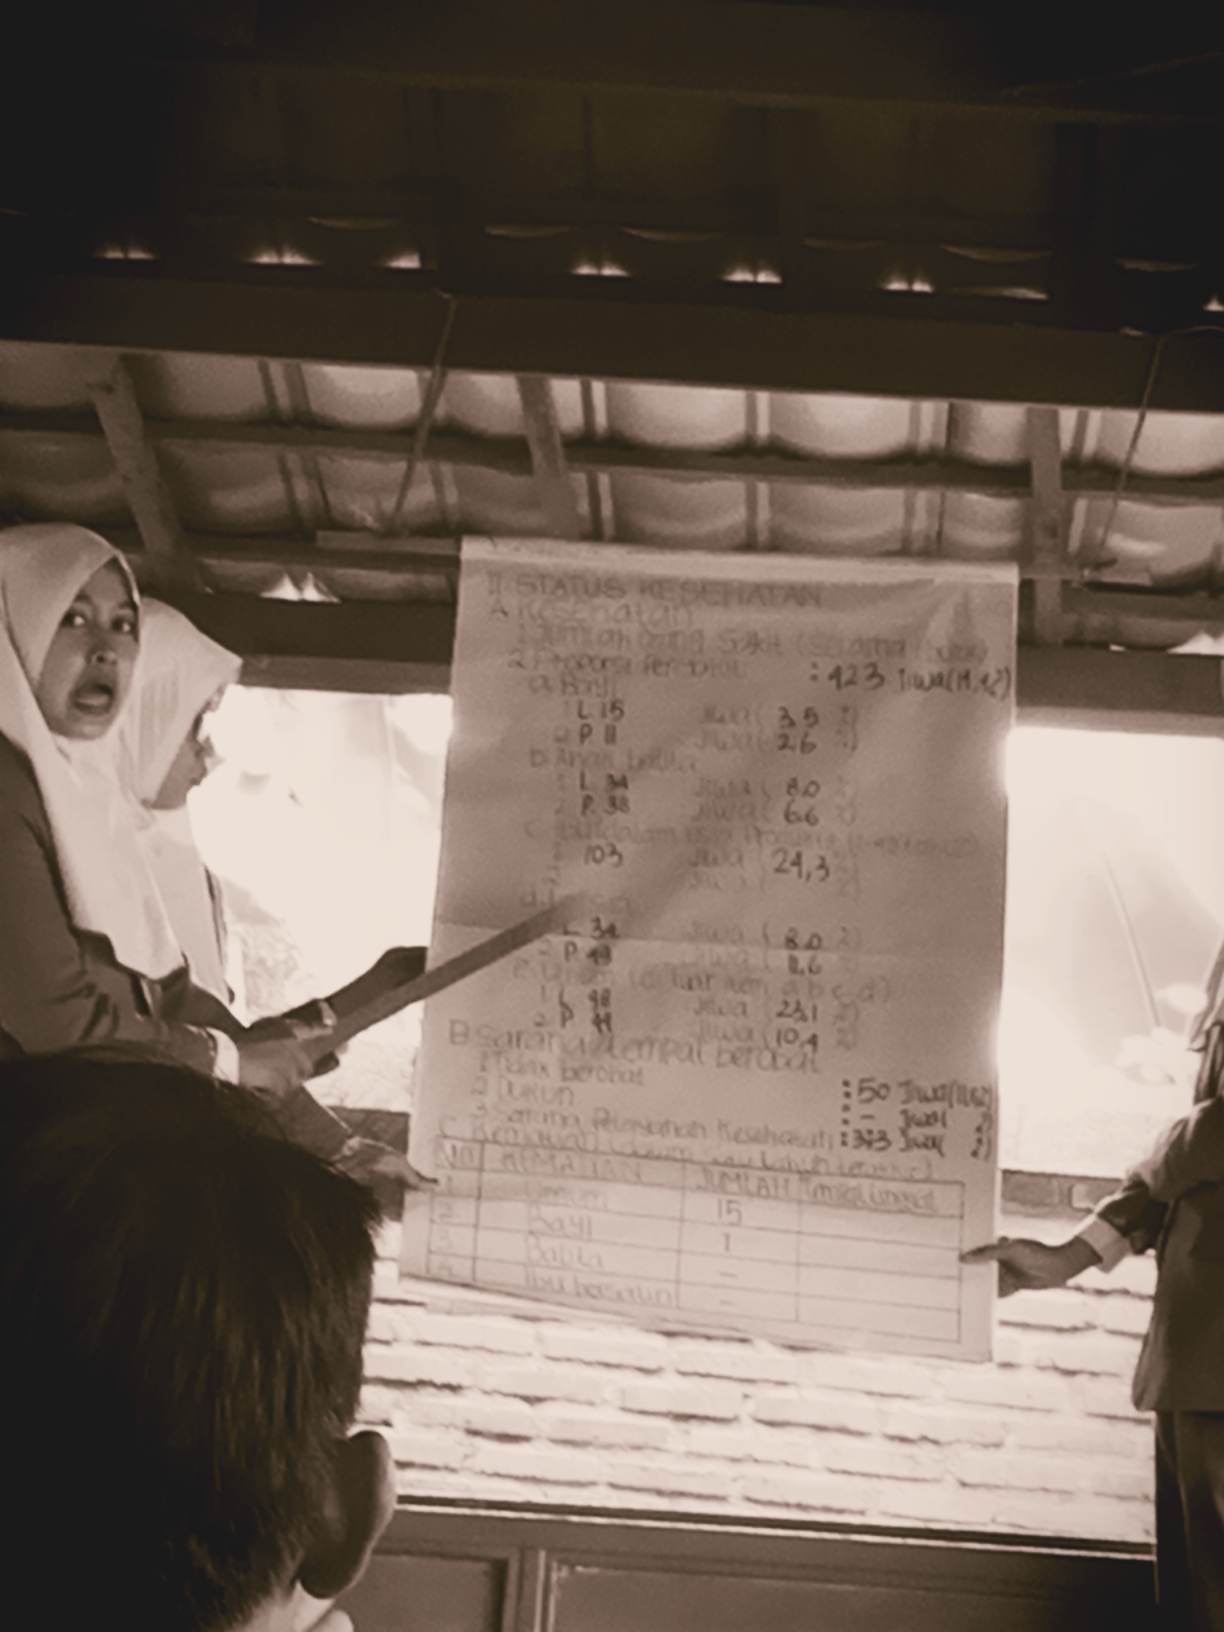 II STATUS KESEHATAN
A Kesehatan
1. Jumlah orang Sakit (selama 1 bulan)
2. Proporsi Penyakit : 423 Jiwa(
a Bayi
1 L 15 Jiwa ( 3,5 %)
2 P 11 Jiwa ( 2,6 %)
b. Anak balita
1 L 34 Jiwa ( 8,0 %)
2 P. Jiwa ( 6,6 %)
c
103 Jiwa ( 24,3
Jiwa (
d.
L 34 Jiwa ( 8,0 %)
2 P 49 Jiwa ( 11,6 %)
e. (di luar item a b c d)
1. L 98 Jiwa ( 23,1 %)
2 P 44 Jiwa ( 10,4 %)
B Sarana/tempat berobat
1 Tidak berobat : 50 Jiwa(
2 Dukun : - Jiwa( %)
3 Sarana Pelayanan Kesehatan : 373 Jiwa( %)
C. Kematian (dalam satu tahun terakhir)
No KEMATIAN JUMLAH
1 Umum 15
2 Bayi 1
3 Balita -
4 Ibu bersalin -